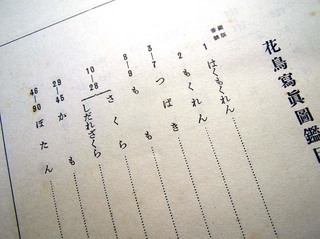 花鳥寫眞圖鑑
1 はくもくれん
2 もくれん
3—7 つばき
8—9 もも
10—28 さくら
しだれざくら
29—45 かも
46—90 ぼたん